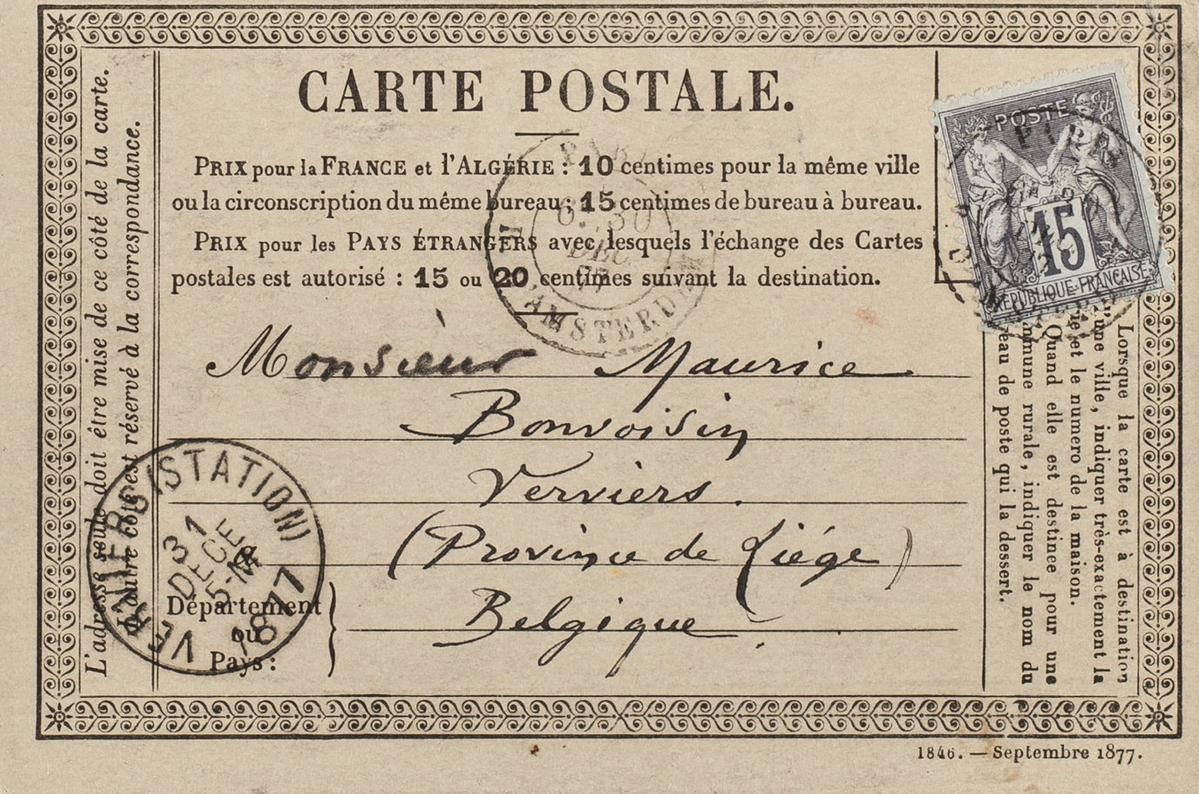 CARTE POSTALE.
PRIX pour la FRANCE et l'ALGÉRIE : 10 centimes pour la même ville
ou la circonscription du même bureau ; 15 centimes de bureau à bureau.
PRIX pour les PAYS ÉTRANGERS avec lesquels l'échange des Cartes
postales est autorisé : 15 ou 20 centimes suivant la destination.
L'adresse seule doit être mise de ce côté de la carte.
D'autre côté est réservé à la correspondance.
POSTE
15
REPUBLIQUE FRANÇAISE
PARIS
PARIS
6 30
DEC
AMSTERDAM
Monsieur Maurice
Bonvoisin
Verviers.
(Province de Liége)
Belgique
Département
ou
Pays :
VERVIERS (STATION)
31
DECE
5-M
1877
Lorsque la carte est à destination
d'une ville, indiquer très-exactement la
rue et le numero de la maison.
Quand elle est destinee pour une
commune rurale, indiquer le nom du
bureau de poste qui la dessert.
1846. — Septembre 1877.